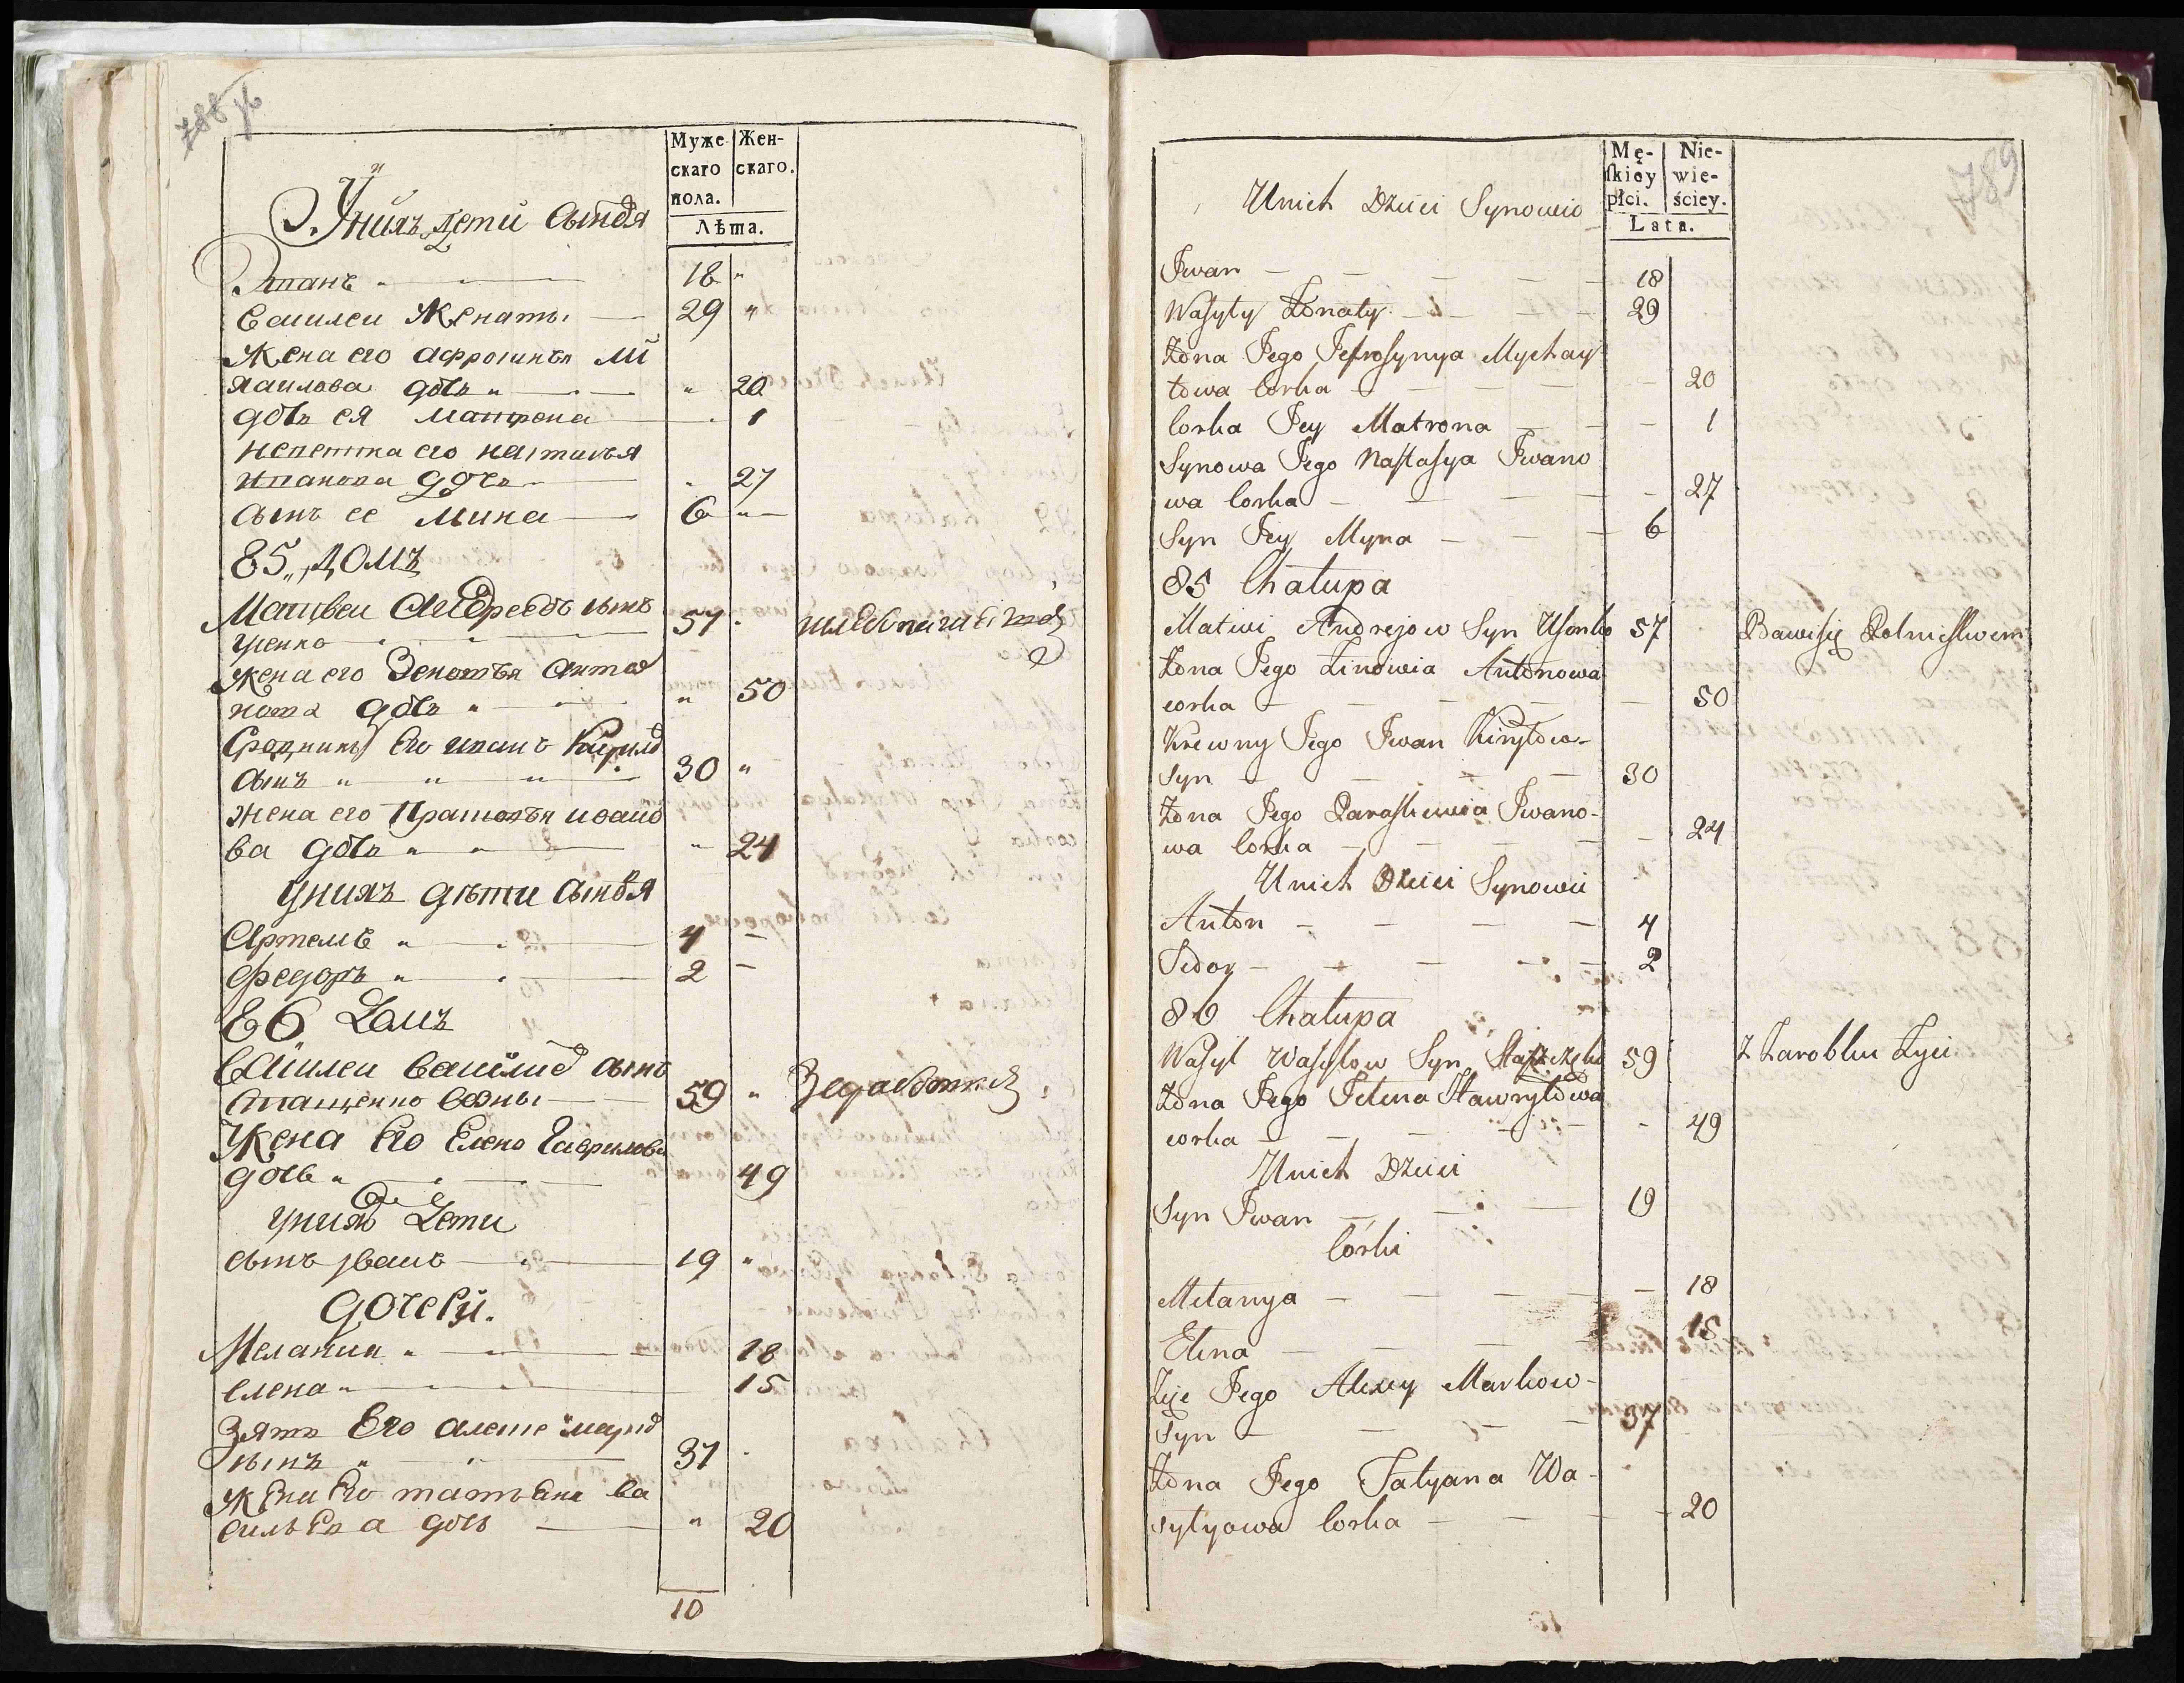 788
Муже Жен-
скаго скаго.
пола.
Лѣта.
Унихъ дети сыновя
Иванъ 18 "
Василеи женатъ 29 "
Жена его Афросинья Ми
хаилова дочь " 20
дочь ея Матрена 1
невестка его Настасья
Иванова дочь 27
сынъ ее Мина 6
85 домъ
Матвеи Андреевъ сынъ
Усенко 57
жена его Зеновья Анто
нова дочь " 50
Сродникъ Его иванъ Кирило
сынъ " " " 30 "
жена его Прасковья ивано
ва дочь " " " 24
унихъ дѣти сыновя
Артемъ " 4
Федоръ " 2
86 домъ
Василеи Василиев сынъ
59 "
Жена Его Елена Гаврилова
дочь " 49
унихъ дети
сынъ иванъ 19 "
дочери.
Мелания " 18
елена " 15
Зять Его алексе марко
сынъ " 37
жена Его татьяна ва
сильева дочь " 20
10
789
Mę- Nie-
skiey wie-
płci. ściey.
Lata.
Unich Dzieci Synowie
Iwan 18
Wasyly Żonaty 29
Żona Jego Jefrosynya Mychay
łowa Corka 20
Corka Jey Matrona 1
Synowa Jego Nastasya Iwano
wa Corka 27
Syn Jey Myna 6
85 Chałupa
Matwi Andrejow Syn Usenko 57 Bawi się Rolnictwem
Żona Jego Zinowia Antonowa
corka 50
Krewny Jego Iwan Kiryłow-
Syn 30
Żona Jego Paraskiewia Iwano-
wa Corka 24
Unich Dzieci Synowie
Anton 4
Fedor 2
86 Chałupa
Wasyl Wasylow Syn 59 Z Zarobku Żyie
Żona Jego Jelena Hawryłowa
corka 49
Unich Dzieci
Syn Iwan 19
Corki
Melanya 18
Elena 15
Zięć Jego Alexey Markow-
Syn 37
Żona Jego Tatyana Wa-
sylyowa Corka 20